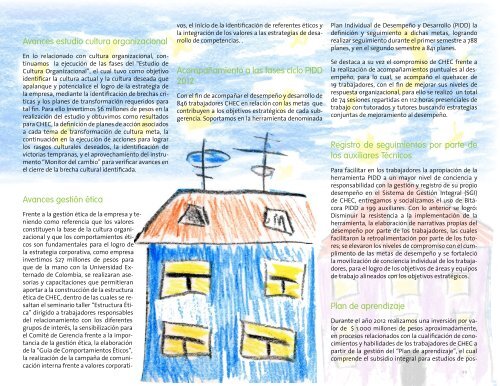 Avances estudio cultura organizacional
En lo relacionado con cultura organizacional, con-
tinuamos la ejecución de las fases del "Estudio de
Cultura Organizacional", el cual tuvo como objetivo
identificar la cultura actual y la cultura deseada que
apalanque y potencialice el logro de la estrategia de
la empresa, mediante la identificación de brechas crí-
ticas y los planes de transformación requeridos para
tal fin. Para ello invertimos 56 millones de pesos en la
realización del estudio y obtuvimos como resultados
para CHEC, la definición de planes de acción asociados
a cada tema de transformación de cultura meta, la
continuación en la ejecución de acciones para lograr
los rasgos culturales deseados, la identificación de
victorias tempranas, y el aprovechamiento del instru-
mento "Monitor del cambio" para verificar avances en
el cierre de la brecha cultural identificada.
Avances gestión ética
Frente a la gestión ética de la empresa y te-
niendo como referencia que los valores
constituyen la base de la cultura organi-
zacional y que los comportamientos éti-
cos son fundamentales para el logro de
la estrategia corporativa, como empresa
invertimos $27 millones de pesos para
que de la mano con la Universidad Ex-
ternado de Colombia, se realizaran ase-
sorías y capacitaciones que permitieran
aportar a la construcción de la estructura
ética de CHEC, dentro de las cuales se re-
saltan el seminario taller "Estructura Éti-
ca" dirigido a trabajadores responsables
del relacionamiento con los diferentes
grupos de interés, la sensibilización para
el Comité de Gerencia frente a la impor-
tancia de la gestión ética, la elaboración
de la "Guía de Comportamientos Éticos",
la realización de la campaña de comuni-
cación interna frente a valores corporati-
vos, el inicio de la identificación de referentes éticos y
la integración de los valores a las estrategias de desa-
rrollo de competencias. .
Acompañamiento a las fases ciclo PIDD
2012
Con el fin de acompañar el desempeño y desarrollo de
846 trabajadores CHEC en relación con las metas que
contribuyen a los objetivos estratégicos de cada sub-
gerencia. Soportamos en la herramienta denominada
Plan Individual de Desempeño y Desarrollo (PIDD) la
definición y seguimiento a dichas metas, logrando
realizar seguimiento durante el primer semestre a 788
planes, y en el segundo semestre a 841 planes.
Se destaca a su vez el compromiso de CHEC frente a
la realización de acompañamientos puntuales al des-
empeño; para lo cual, se acompañó el quehacer de
19 trabajadores, con el fin de mejorar sus niveles de
respuesta organizacional, para ello se realizó un total
de 74 sesiones repartidas en 112 horas presenciales de
trabajo con tutorados y tutores buscando estrategias
conjuntas de mejoramiento al desempeño.
Registro de seguimientos por parte de
los auxiliares Técnicos
Para facilitar en los trabajadores la apropiación de la
herramienta PIDD a un mayor nivel de conciencia y
responsabilidad con la gestión y registro de su propio
desempeño en el Sistema de Gestión Integral (SGI)
de CHEC, entregamos y socializamos el uso de Bitá-
cora PIDD a 199 auxiliares. Con lo anterior se logró:
Disminuir la resistencia a la implementación de la
herramienta, la elaboración de narrativas propias del
desempeño por parte de los trabajadores, las cuales
facilitaron la retroalimentación por parte de los tuto-
res; se elevaron los niveles de compromiso con el cum-
plimiento de las metas de desempeño y se fortaleció
la movilización de conciencia individual de los trabaja-
dores, para el logro de los objetivos de áreas y equipos
de trabajo alineados con los objetivos estratégicos.
Plan de aprendizaje
Durante el año 2012 realizamos una inversión por va-
lor de $ 3.000 millones de pesos aproximadamente,
en procesos relacionados con la cualificación de cono-
cimientos y habilidades de los trabajadores de CHEC a
partir de la gestión del "Plan de aprendizaje", el cual
comprende el subsidio integral para estudios de pos-